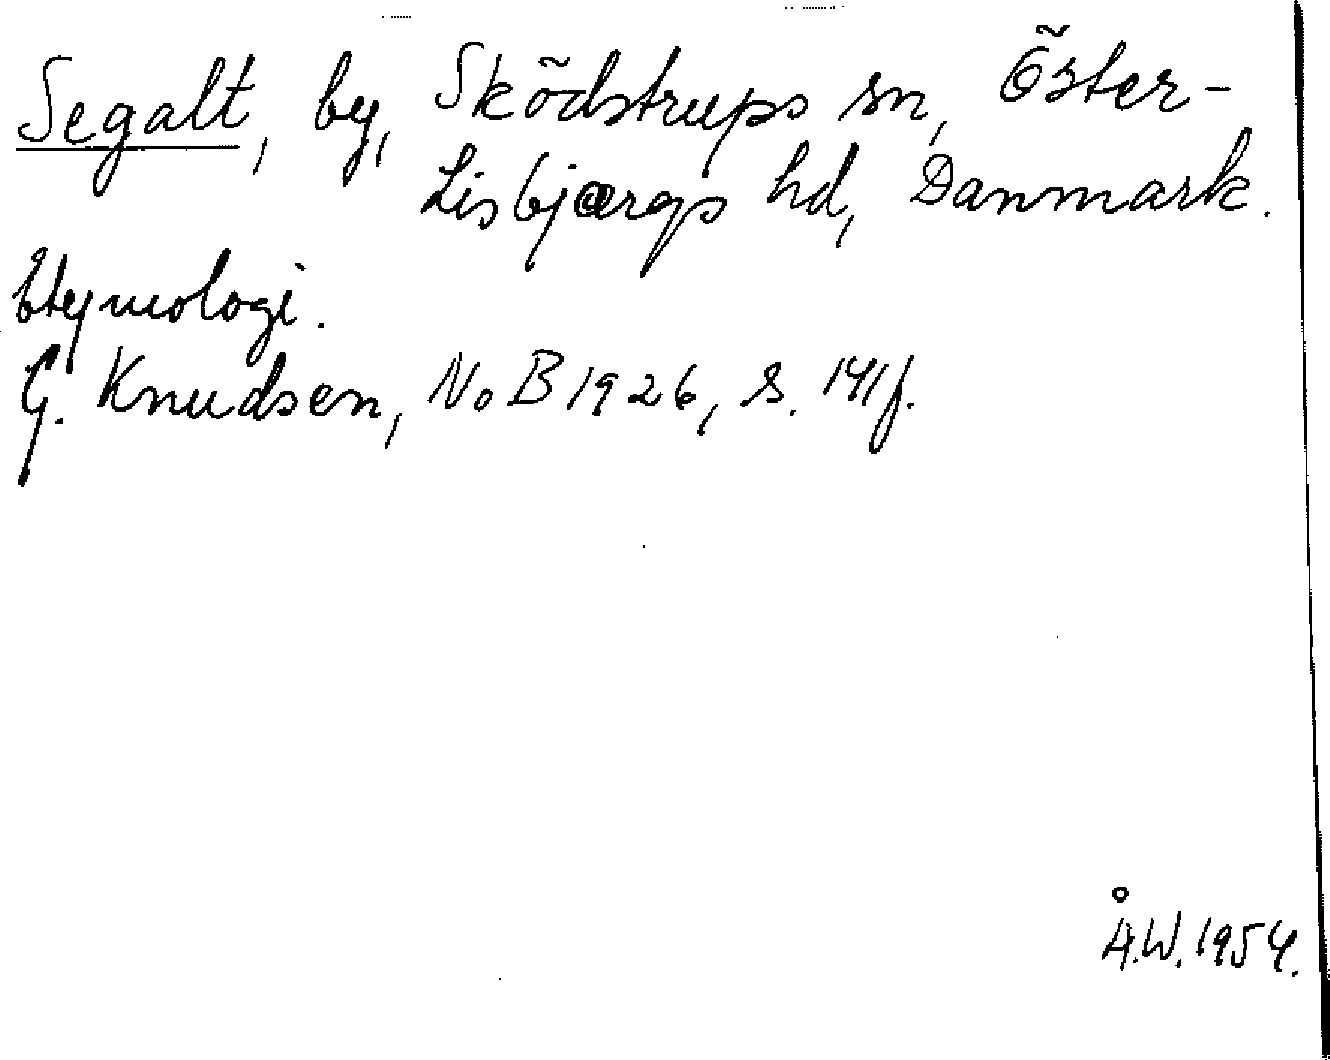 Segalt, by, Sködstrups sn, Öster-
Lisbjærgs hd, Danmark.
Etymologi.
G. Knudsen, NoB 1926, s. 141f.
Å.W. 1954.